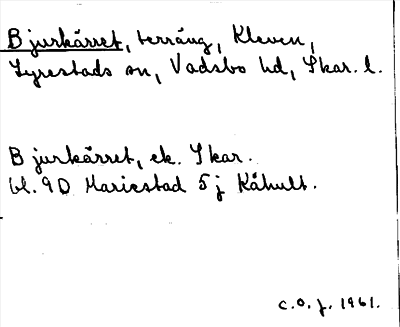 Bjurkärret, terräng, Kleven,
Lyrestads sn, Vadsbo hd, Skar. l.
Bjurkärret, ek. Skar.
bl. 9D Mariestad 5j Kåhult.
C.O.J. 1961.